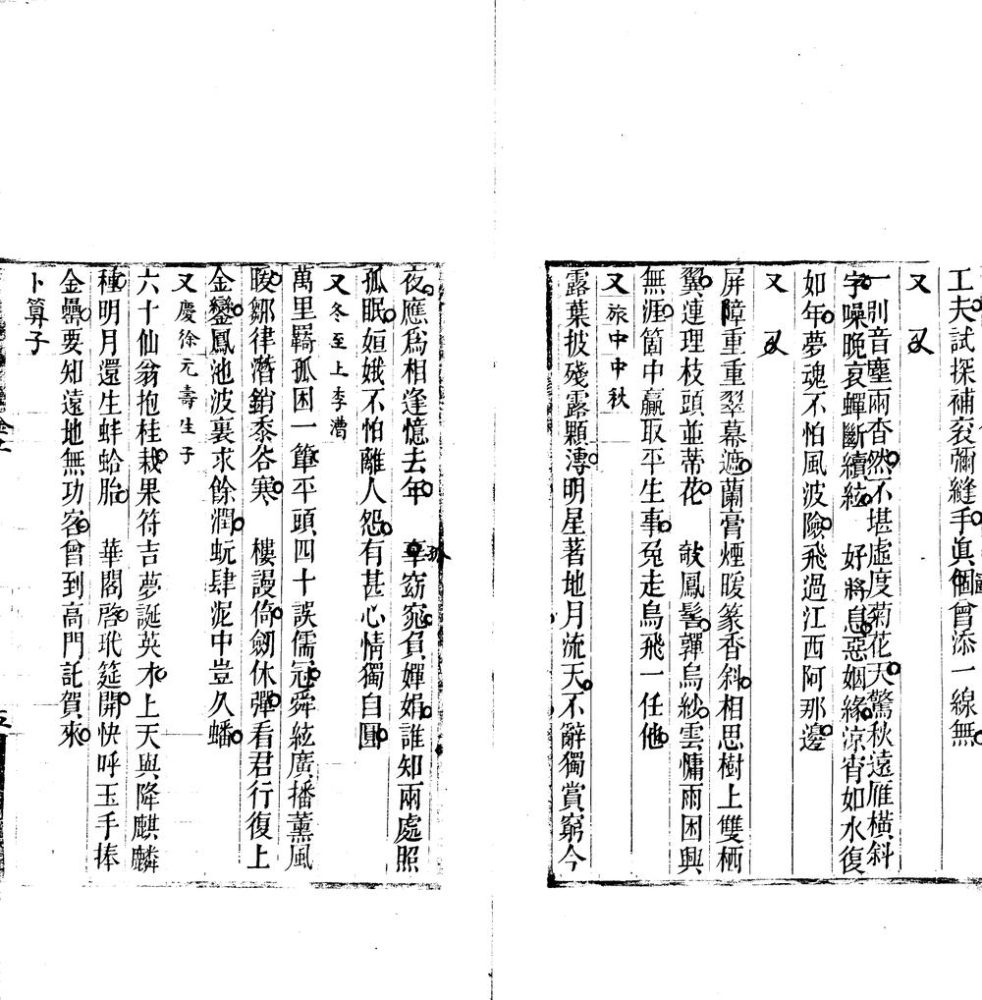 工夫試探補袞彌縫手眞個曾添一線無
又 又
一別音塵兩杳然不堪虛度菊花天驚秋遠雁橫斜
字噪晚哀蟬斷續絃 好將息惡姻緣涼宵如水復
如年夢魂不怕風波險飛過江西阿那邊
又 又
屏障重重翠幕遮蘭膏煙暖篆香斜相思樹上雙栖
翼連理枝頭並蒂花 欹鳳髻嚲烏紗雲慵雨困興
無涯箇中贏取平生事兔走烏飛一任他
又 旅中中秋
露葉披殘露顆漙明星著地月流天不辭獨賞窮今
夜應爲相逢憶去年 辜窈窕負嬋娟誰知兩處照
孤眠姮娥不怕離人怨有甚心情獨自圓
又 冬至上李漕
萬里羈孤困一簞平頭四十誤儒冠舜絃廣播薰風
暖鄒律潛銷黍谷寒 樓謾倚劒休彈看君行復上
金鑾鳳池波裏求餘潤蚖肆泥中豈久蟠
又 慶徐元壽生子
六十仙翁抱桂栽果符吉夢誕英才上天與降麒麟
種明月還生蚌蛤胎 華閣啓玳筵開快呼玉手捧
金罍要知遠地無功客曾到高門託賀來
卜算子